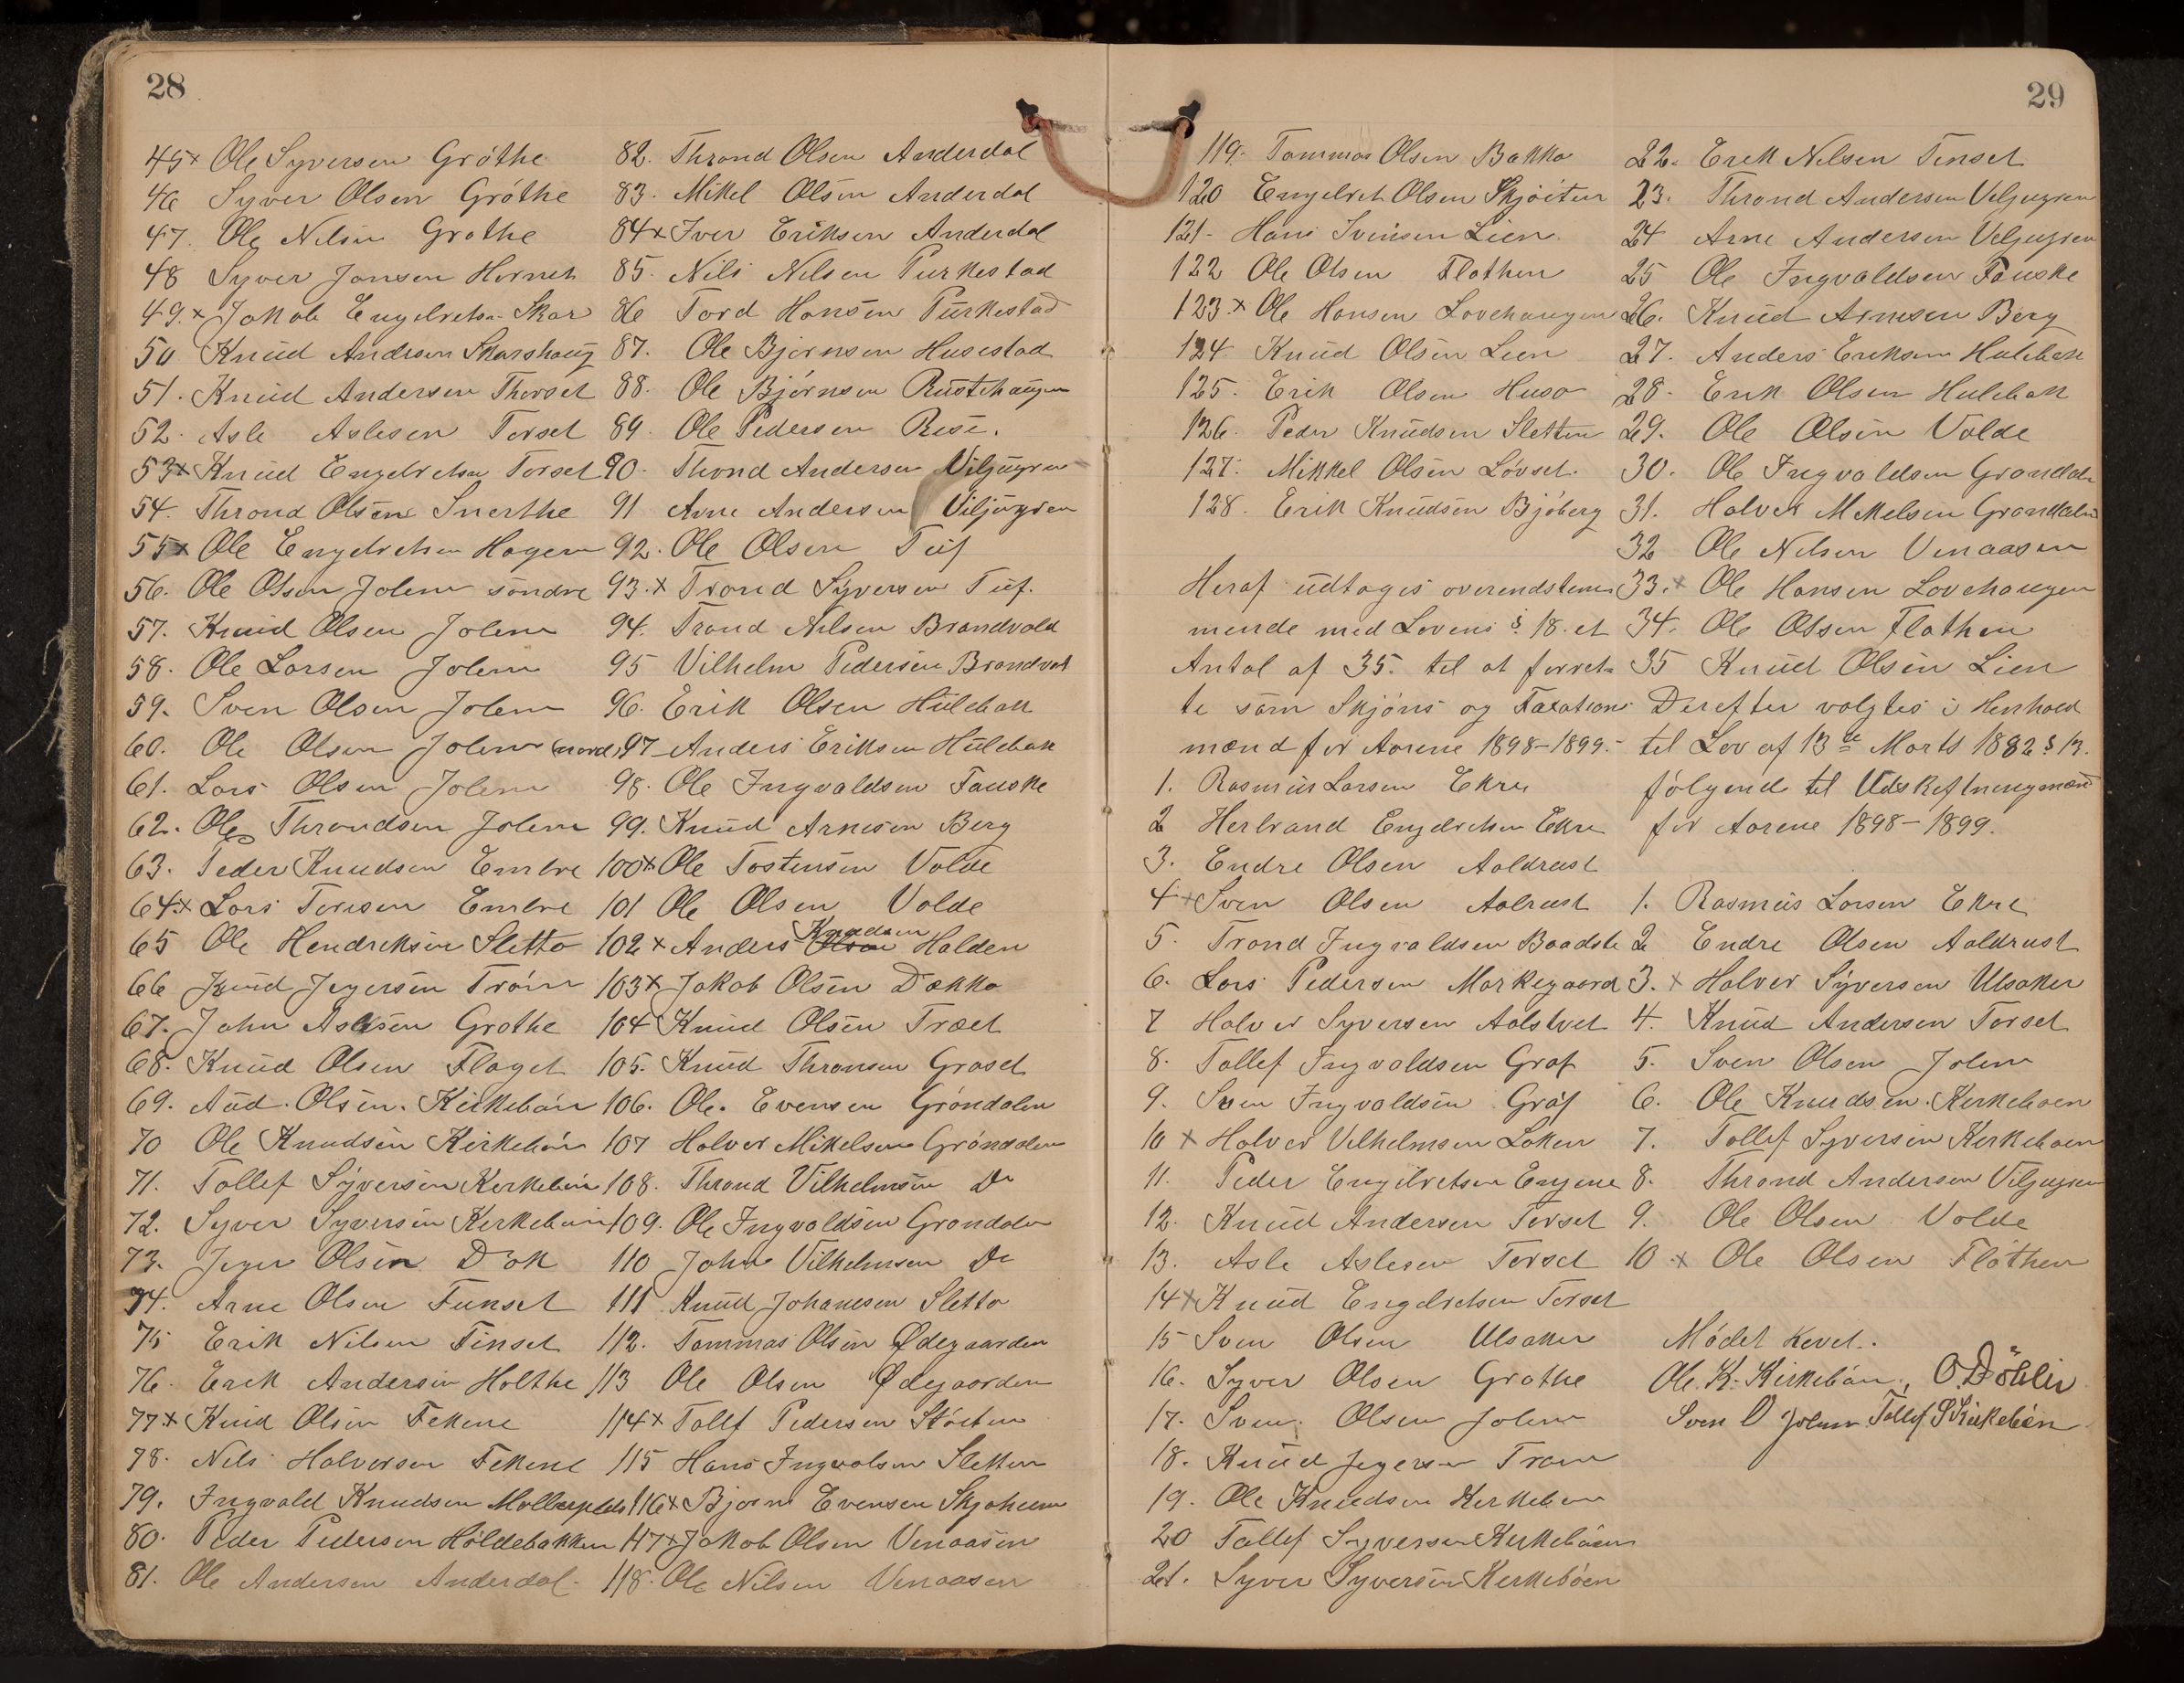 28
45 x Ole Syversen Gröthe
46 Syver Olsen Gröthe
47. Ole Nilsen Grothe
48 Syver Jonsen Hernes
49. x Jakob Engebretsen Skar
50 Knud Andersen Skarshaug
51. Knud Andersen Thorset
52. Asle Aslesen Torset
53 x Knud Engebretsen Torset
54. Thrond Olsen Snerthe
55 x Ole Engebretsen Hagen
56. Ole Olsen Jolem söndre
57. Knud Olsen Jolem
58. Ole Larsen Jolem
59. Sven Olsen Jolem
60. Ole Olsen Jolem (nord)
61. Lars Olsen Jolem
62. Ole Throndsen Jolem
63. Peder Knudsen Embre
64. x Lars Toresen Embre
65 Ole Hendriksen Sletto
66 Knud Jegersen Tröim
67. John Aslesen Grothe
68. Knud Olsen Flaget
69. Aud. Olsen. Kirkebön
70 Ole Knudsen Kirkebön
71. Tollef Syversen Kirkeböen
72. Syver Syversen Kirkeböen
73. Jeger Olsen Dök
74. Arne Olsen Tunset
75 Erik Nilsen Tinset
76. Erik Andersen Holthe
77 x Knud Olsen Fekene
78. Nils Halvorsen Fekene
79. Ingvald Knudsen
80. Peder Pedersen Höldebakken
81. Ole Andersen Anderdal
82. Thrond Olsen Anderdal
83. Mikel Olsen Anderdal
84 x Iver Eriksen Anderdal
85. Nils Nilsen Purkestad
86 Tord Hansen Purkestad
87. Ole Bjørnsen Husestad
88. Ole Bjørnsen Rustehaugen
89. Ole Pedersen Rise.
90. Thond Andersen Viljugren
91 Arne Andersen Viljugren
92. Ole Olsen Tuf
93. x Trond Syversen Tuf.
94. Trond Nilsen Brandvold
95 Vilhelm Pedersen Brandvol
96. Erik Olsen Hulebak
97 Anders Eriksen Hulebak
98. Ole Ingvaldsen Fauske
99. Knud Arnesen Berg
100 x Ole Tostensen Volde
101 Ole Olsen Volde
Knudsen
102 x Anders Olsen Halden
103 x Jakob Olsen Dokka
104 Knud Olsen Træet
105. Knud Thronsen Graset
106. Ole. Evensen Gröndalen
107 Halvor Mikelsen Gröndalen
108. Thrond Vilhelmsen Do
109. Ole Ingvaldsen Grondalen
110 John Vilhelmsen Do
111 Knud Johanesen Sletto
112. Tommas Olsen Ødegaarden
113 Ole Olsen Ødegaarden
114 x Tollf Pedersen Stöiten
115 Hans Ingvalsen Sletten
116 x Bjørn Evensen
117 x Jakob Olsen Venaasen
118. Ole Nilsen Venaasen
29
119. Tommas Olsen Bakko
120 Engebret Olsen Skjöiten
121 Hans Svensen Lien
122 Ole Olsen Flathen
123. x Ole Hansen Lovehaugen
124 Knud Olsen Lien
125. Erik Olsen Huso
126. Peder Knudsen Sletten
127. Mikkel Olsen Lövset.
128. Erik Knudsen Bjöberg
Heraf udtoges overendstem
mende med Lovens § 18. et
Antal af 35. til at forret-
te som Skjöns og Taxations
mænd for Aarene 1898-1899.
1. Rasmus Larsen Ekre
2 Herbrand Engebretsen Ekre
3. Endre Olsen Aaldrust
4 x Sven Olsen Aalrust
5. Trond Ingvaldsen Baadste
6. Lars Pedersen Markegaard
7 Halvor Syversen Aalstvet
8. Tollef Ingvaldsen Graf
9. Sven Ingvaldsen Graf
10 x Halvor Vilhelmsen Loken
11. Peder Engebretsen Engene
12. Knud Andersen Torset
13. Asle Aslesen Torset
14 x Knud Engebretsen Torset
15 Sven Olsen Ulsaker
16. Syver Olsen Grothe
17. Sven Olsen Jolem
18. Knud Jegersen Troim
19. Ole Knudsen Kirkeboen
20 Tollef Syversen Kirkeböen
21. Syver Syversen Kirkeböen
22. Erik Nilsen Tinset
23. Thrond Andersen Viljugren
24 Arne Andersen Viljugren
25 Ole Ingvaldsen Fauske
26. Knud Arnesen Berg
27. Anders Eriksen Hulebak
28. Erik Olsen Hulebak
29. Ole Olsen Volde
30. Ole Ingvaldsen Grondalen
31. Halvor Mikelsen Grondalen
32 Ole Nilsen Venaasen
33. x Ole Hansen Lovehaugen
34. Ole Olsen Flathen
35 Knud Olsen Lien
Derefter valgtes i Henhold
til Lov af 13de Marts 1882 § 13.
følgende til Udskiftningmænd
for Aarene 1898-1899.
1. Rasmus Larsen Ekre
2 Endre Olsen Aaldrust
3. x Halvor Syversen Ulsaker
4. Knud Andersen Torset
5. Sven Olsen Jolem
6. Ole Knudsen. Kirkeboen
7. Tollef Syversen Kirkeboen
8. Thrond Andersen Viljugren
9. Ole Olsen Volde
10 x Ole Olsen Flöthen
Mödet hevet.
Ole. K. Kirkebön, O. Döhlin
Sven O Jolem Tollef S Kirkebön